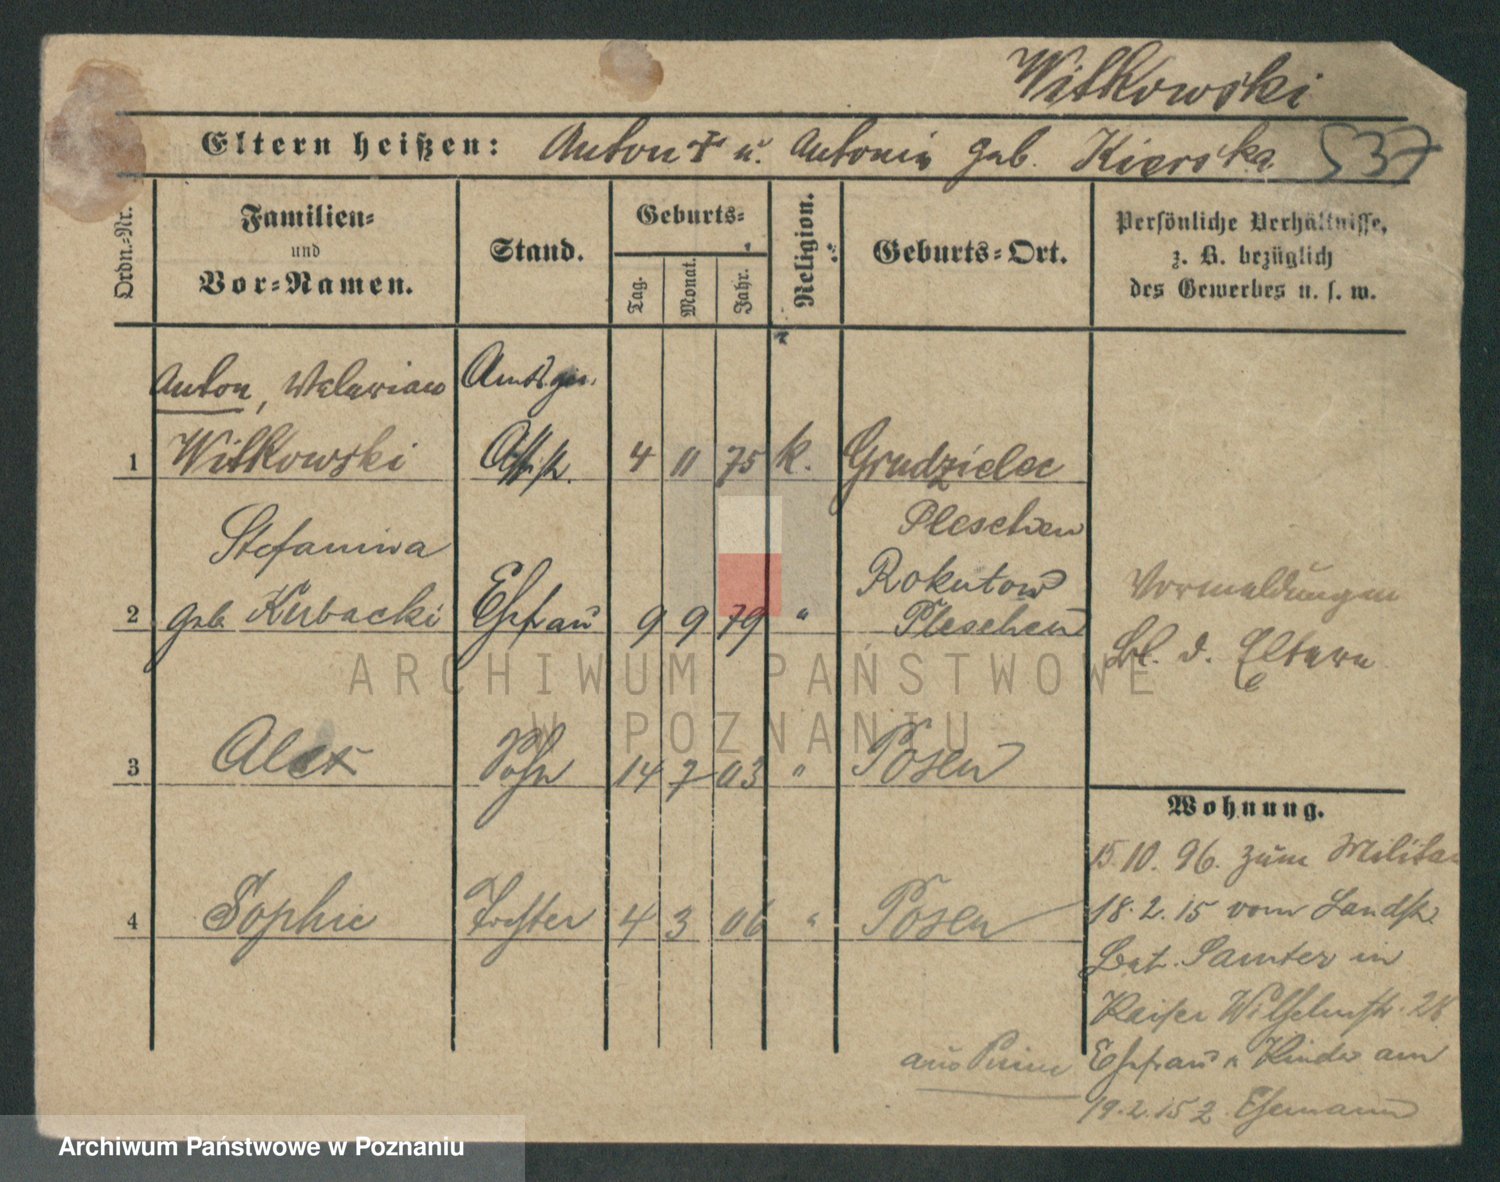 Witkowski
Eltern heißen: Anton † u. Antonie geb. Kierska 537
Ordn.-Nr.
Familien-
und
Vor-Namen.
Stand.
Geburts-
Tag.
Monat.
Jahr.
Religion.
Geburts-Ort.
Persönliche Verhältnisse,
z. B. bezüglich
des Gewerbes u. s. w.
Anton, Walerian Amtsger.
1 Witkowski Assist. 4 11 75 k. Grudzielec
Pleschen
Stefaniwa Rokutow
2 geb Kubacki Ehefrau 9 9 79 " Pleschen
Vormeldungen
Bl. d. Eltern
3 Alex Sohn 14 7 03 " Posen
4 Sophie Tochter 4 3 06 " Posen
Wohnung.
15.10.96. zum Militär
18.2.15 vom Landst
Bat. Samter in
Kaiser Wilhelmstr. 28
aus Ehefrau u Kinder am
19.2.15 z. Ehemann
ARCHIWUM PAŃSTWOWE
W POZNANIU
Archiwum Państwowe w Poznaniu